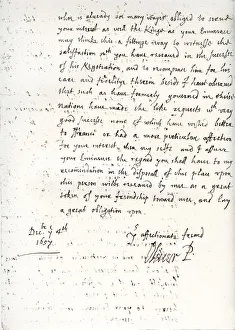 who is already so many wayes obliged to second
your interest as with the Kinge as your Eminence
may thinke this a fittinge way to witnesse the
satisfaction wch you have received in the successe
of his Negotiation, and to recompence him for his
care and fidelitye therein besids I have observed
that such as have formerly governed in
have made the like requests wth very
good successe none of which have wished better
to France or had a more particular affection
for your interest, then my selfe and I assure
your Eminence the regard you shall have to my
recomendation in the disposall of this place upon
this person wilbe receaved by mee as a great
token of your friendship toward mee, and lay
a great obligation upon.
Yr affectionate friend
Dec. ye 4th
1657
Oliver P.